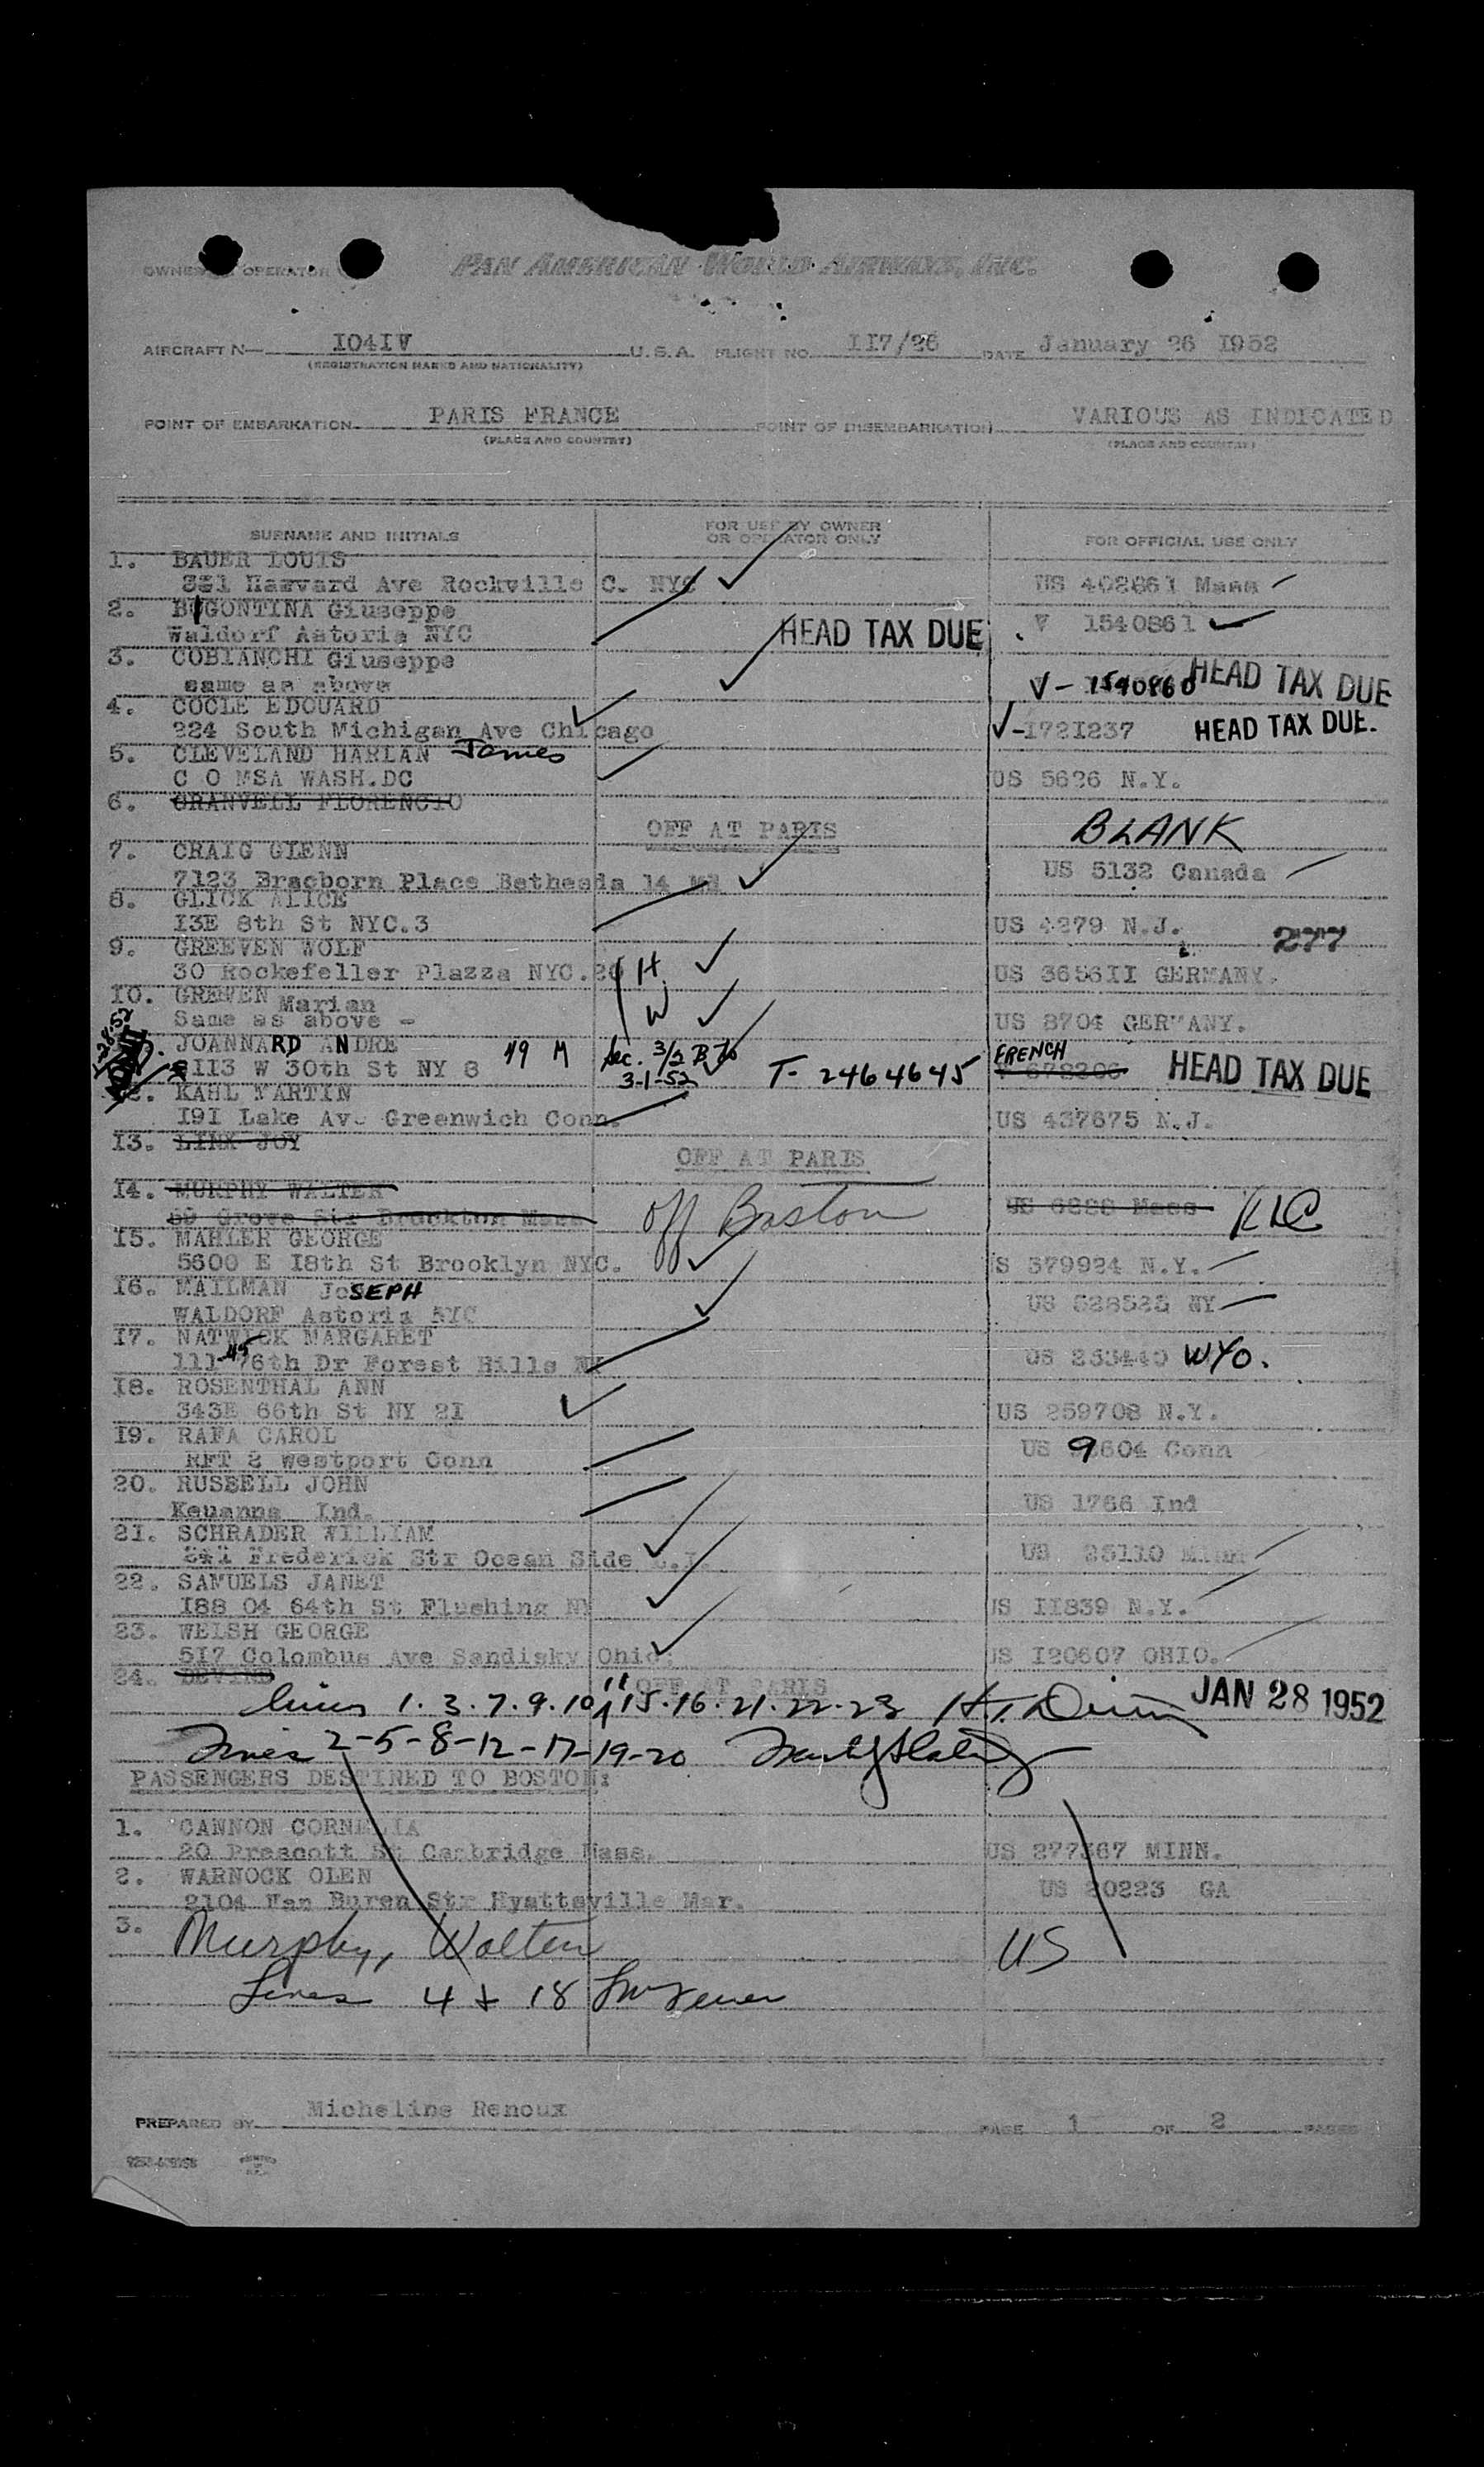 OWNER OR OPERATOR PAN AMERICAN WORLD AIRWAYS, INC.
AIRCRAFT N— I04IV U.S.A. FLIGHT NO. II7/26 DATE January 26 I952
(REGISTRATION MARKS AND NATIONALITY)
POINT OF EMBARKATION PARIS FRANCE POINT OF DISEMBARKATION VARIOUS AS INDICATED
(PLACE AND COUNTRY) (PLACE AND COUNTRY)
SURNAME AND INITIALS FOR USE BY OWNER OR OPERATOR ONLY FOR OFFICIAL USE ONLY
1. BAUER LOUIS
Harvard Ave Rockville C. NYC US 402861 Mass
2. BIGONTINA Giuseppe
Waldorf Astoria NYC HEAD TAX DUE V 1540861
3. COBIANCHI Giuseppe
same as above V-1540860 HEAD TAX DUE
4. COCLE EDOUARD
224 South Michigan Ave Chicago V-I72I237 HEAD TAX DUE.
5. CLEVELAND HARLAN James
C O MSA WASH.DC US 5626 N.Y.
6. CRANVELL FLORENCIO
OFF AT PARIS BLANK
7. CRAIG GLENN
7123 Braeborn Place Bethesda 14 MD US 5132 Canada
8. GLICK ALICE
I3E 8th St NYC.3 US 4279 N.J. 277
9. GREEVEN WOLF
30 Rockefeller Plazza NYC.20 H. US 3656II GERMANY.
I0. GREVEN Marian
Same as above - W US 8704 GERMANY.
1-28-52
JOANNARD ANDRE
2113 W 30th St NY 8 49 M Sec. 3/2 B 3-1-52 T- 2464645 FRENCH HEAD TAX DUE
KAHL MARTIN
I9I Lake Av. Greenwich Conn. US 437675 N.J.
I3. LINK JOY
OFF AT PARIS
I4. MURPHY WALTER
Grove Str Brockton Mass off Boston US 6228 Mass KLC
I5. MAHLER GEORGE
5600 E I8th St Brooklyn NYC. S 379924 N.Y.
I6. MAILMAN JoSEPH
WALDORF Astoria NYC US NY
I7. NATWICK MARGARET
111-45 76th Dr Forest Hills NY US 253440 WYO.
I8. ROSENTHAL ANN
343E 66th St NY 2I US 259708 N.Y.
I9. RAFA CAROL
RFT 2 Westport Conn US 9604 Conn
20. RUSSELL JOHN
Kewanna Ind. US 1766 Ind
2I. SCHRADER WILLIAM
Frederick Str Ocean Side L.I. US 25110
22. SAMUELS JANET
I88 04 64th St Flushing NY US II839 N.Y.
23. WELSH GEORGE
5I7 Colombus Ave Sandisky Ohio. US I20607 OHIO.
24. DEVINE
OFF AT PARIS
lines 1.3.7.9.10.11.15.16.21.22.23 JAN 28 1952
Lines 2-5-8-12-17-19-20
PASSENGERS DESTINED TO BOSTON:
1. CANNON CORNELIA
20 Prescott St Cambridge Mass. US 277367 MINN.
2. WARNOCK OLEN
2104 Van Buren Str Hyattsville Mar. US 20223 GA
3. Murphy, Walter US
Lines 4 + 18
PREPARED BY Micheline Renoux PAGE 1 OF 2 PAGES